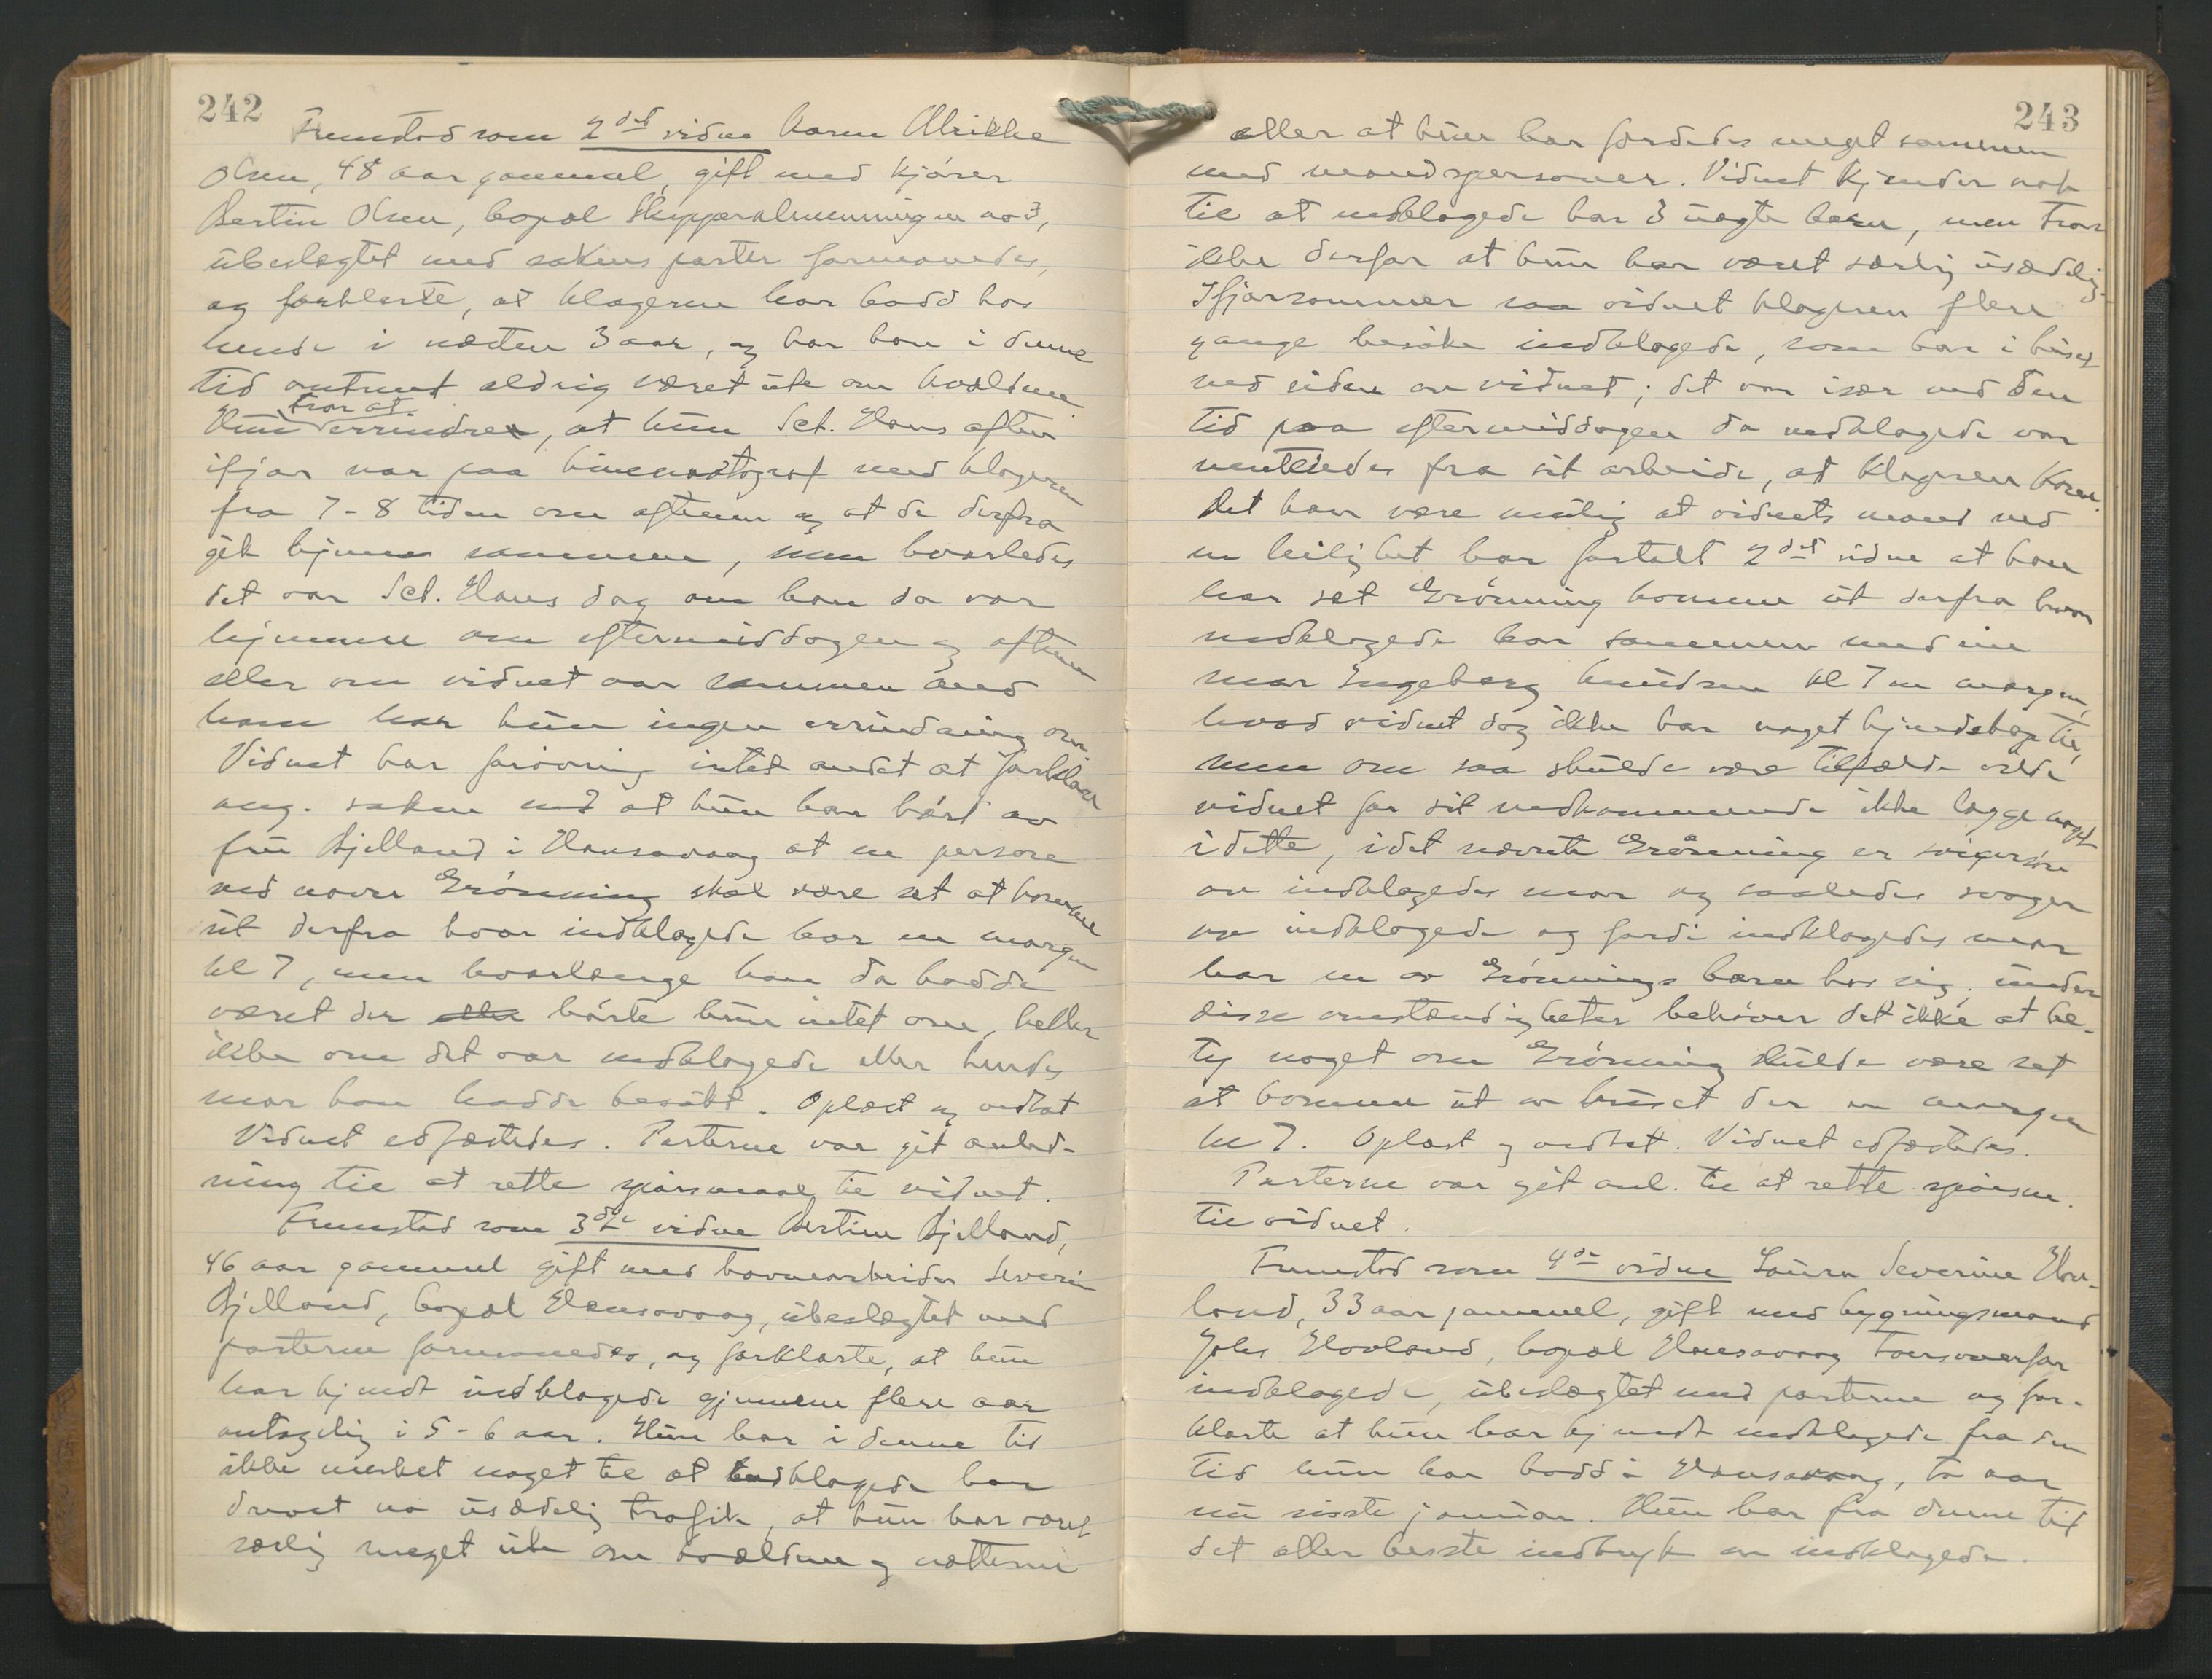 242
Fremstod som 2det vidne Karen Alrikke
Olsen, 48 aar gammel, gift med kjører
Bertin Olsen, bopæl Skipperalmenningen no 3,
ubeslegtet med sakens parter formanedes,
og forklarte, at klageren har bodd hos
hende i næsten 3 aar, og har han i denne
tid omtrent aldrig været ute om kvældene.
Hun tror at erindrer, at hun Sct. Hans aften
ifjor var paa kinematograf med klageren
fra 7-8 tiden om aftenen og at de derfra
gik hjem sammen, men hvorledes
det var Sct. Hans dag om han da var
hjemme om eftermiddagen og aftenen
eller om vidnet var sammen med
ham har hun ingen erindring om.
Vidnet har forøvrig intet andet at forklare
ang. saken end at hun har hørt av
fru Bjelland i Hansavaag at en person
ved navn Grönning skal være set at komme
ut derfra hvor indklagede bor en morgen
kl 7, men hvorlænge han da hadde
været der eller hørte hun intet om, heller
ikke om det var indklagede eller hendes
mor han hadde besøkt. Oplæst og vedtat
Vidnet edfæstedes. Parterne var git anled-
ning til at rette spørsmaal til vidnet.
Fremstod som 3die vidne Bertine Bjelland,
46 aar gammel gift med havnearbeider Severin
Bjelland, bopæl Hansavaag, ubeslægtet med
parterne formanedes, og forklarte, at hun
har kjendt indklagede gjennem flere aar
antagelig i 5-6 aar. Hun har i denne tid
ikke merket noget til at indklagede har
drevet no usædelig trafik, at hun har været
særlig meget ute om kvældene og nætterne
243
eller at hun har færdedes meget sammen
med mandspersoner. Vidnet kjender nok
til at indklagede har 3 uegte barn, men tror
ikke derfor at hun har været særlig usædelig.
Ifjorsommer saa vidnet klageren flere
gange besøke indklagede, som bor i huset
ved siden av vidnet; det var især ved den
tid paa eftermiddagen da indklagede var
ventendes fra sit arbeide, at klageren kom.
Det kan være mulig at vidnets mand ved
en leilighet har fortalt 2det vidne at han
har set Grönning komme ut derfra hvor
indklagede bor sammen med sin
mor Ingeborg Knudsen kl 7 en morgen,
hvad vidnet dog ikke har noget kjendskap til,
men om saa skulde være tilfælde vilde
vidnet for sit vedkommende ikke lægge noget
i dette, idet nævnte Grönning er svigersøn
av indklagedes mor og saaledes svoger
av indklagede og fordi indklagedes mor
har en av Grönnings barn hos sig. Under
disse omstændigheter behøver det ikke at be-
ty noget om Grönning skulde være set
at komme ut av huset der en morgen
kl 7. Oplæst og vedtat. Vidnet edfæstedes.
Parterne var git anl. til at rette spørsm.
til vidnet.
Fremstod som 4de vidne Laura Severine Hov-
land, 33 aar gammel, gift med bygningsmand
Johs Hovland, bopæl Hansavaag
indklagede, ubeslægtet med parterne og for-
klarte at hun har kjendt indklagede fra den
tid hun har bodd i Hansavaag, to aar
nu siste januar. Hun har fra denne tid
det aller beste indtryk av indklagede.